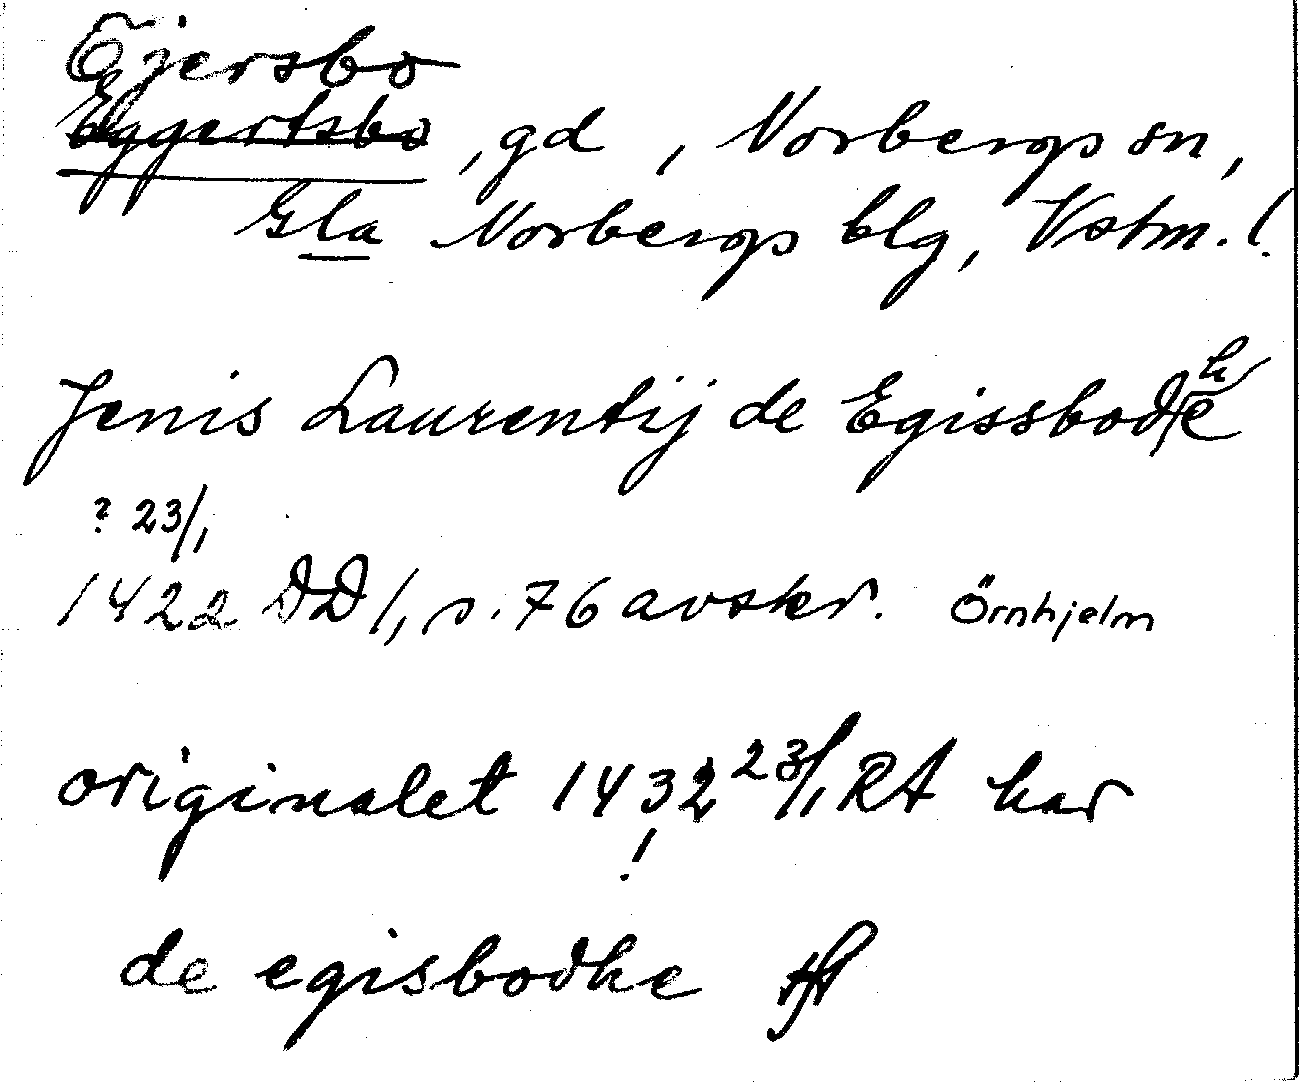 Ejersbo
Eggertsbo, gd, Norbergs sn,
Gla Norbergs blg, Vstm. l.
h
Jenis Laurentij de Egissbode
? 23/1
1422 DD 1, s. 76 avskr. Örnhjelm
originalet 1432 23/1 RA har
!
de egisbodhe